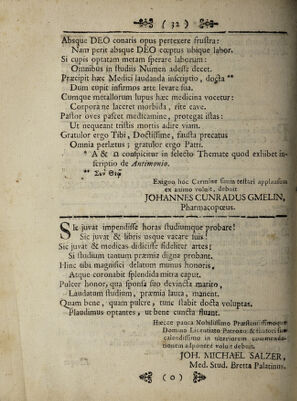 ( 32 )
Absque DEO conaris opus pertexere frustra:
Nam perit absque DEO cœptus ubique labor.
Si cupis optatam metam sperare laborum:
Omnibus in studiis Numen adesse decet.
Præcipit hæc Medici laudanda inscriptio, docta **
Dum cupit infirmos arte levare sua.
Cumque metallorum lupus hæc medicina vocetur:
Corpora ne laceret morbida, rite cave.
Pastor oves pascet medicamine, protegat istas:
Ut nequeant tristis mortis adire viam.
Gratulor ergo Tibi, Doctissime, fausta precatus
Omnia perlætus; gratulor ergo Patri.
* A & Ω conspicitur in selecto Themate quod exhibet in-
scriptio de Antimonio.
** Σὺν Θεῷ
Exiguo hoc Carmine suum testari applausum
ex animo voluit, debuit
JOHANNES CUNRADUS GMELIN,
Pharmacopœus.
Sic juvat impendisse horas studiumque probare!
Sic juvat & libris usque vacare luis!
Sic juvat & medicas didicisse fideliter artes!
Si studium tantum præmia digna probant.
Hinc tibi magnifici delatum munus honoris,
Atque coronabit splendida mitra caput.
Pulcer honor, qua sponsa suo devincta marito,
Laudatum studium, præmia laura, manent.
Quam bene, quam pulcre, tunc stabit docta voluptas.
Plaudimus optantes, ut bene cuncta fluant.
Hæcce pauca Nobilissimo Præstantissimoque
Domino Licentiato Patrono & Fautori suo
calendissimo in ulteriorem commenda-
tionem adponere voluit debuit
JOH. MICHAEL SALZER,
Med. Stud. Bretta Palatinus.
( o )